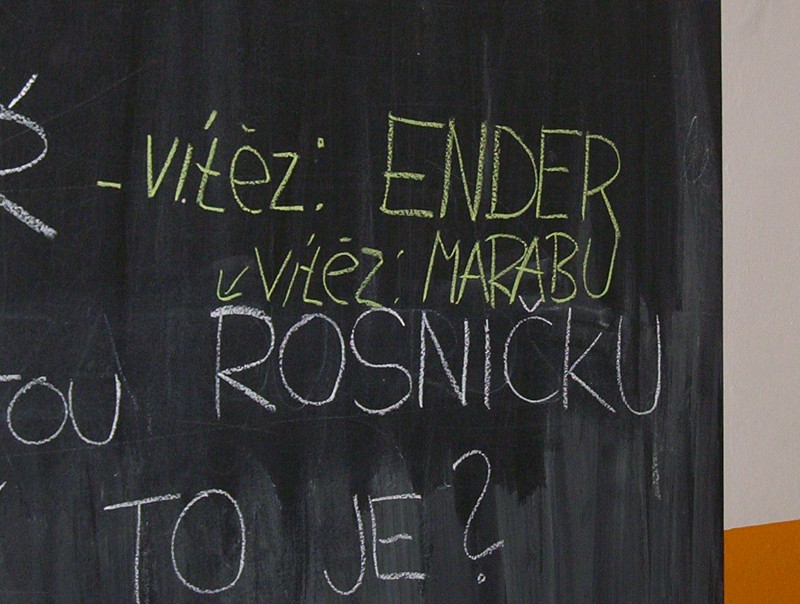 Ř - vítěz: ENDER
vítěz: MARABU
TOU ROSNIČKU
TO JE?